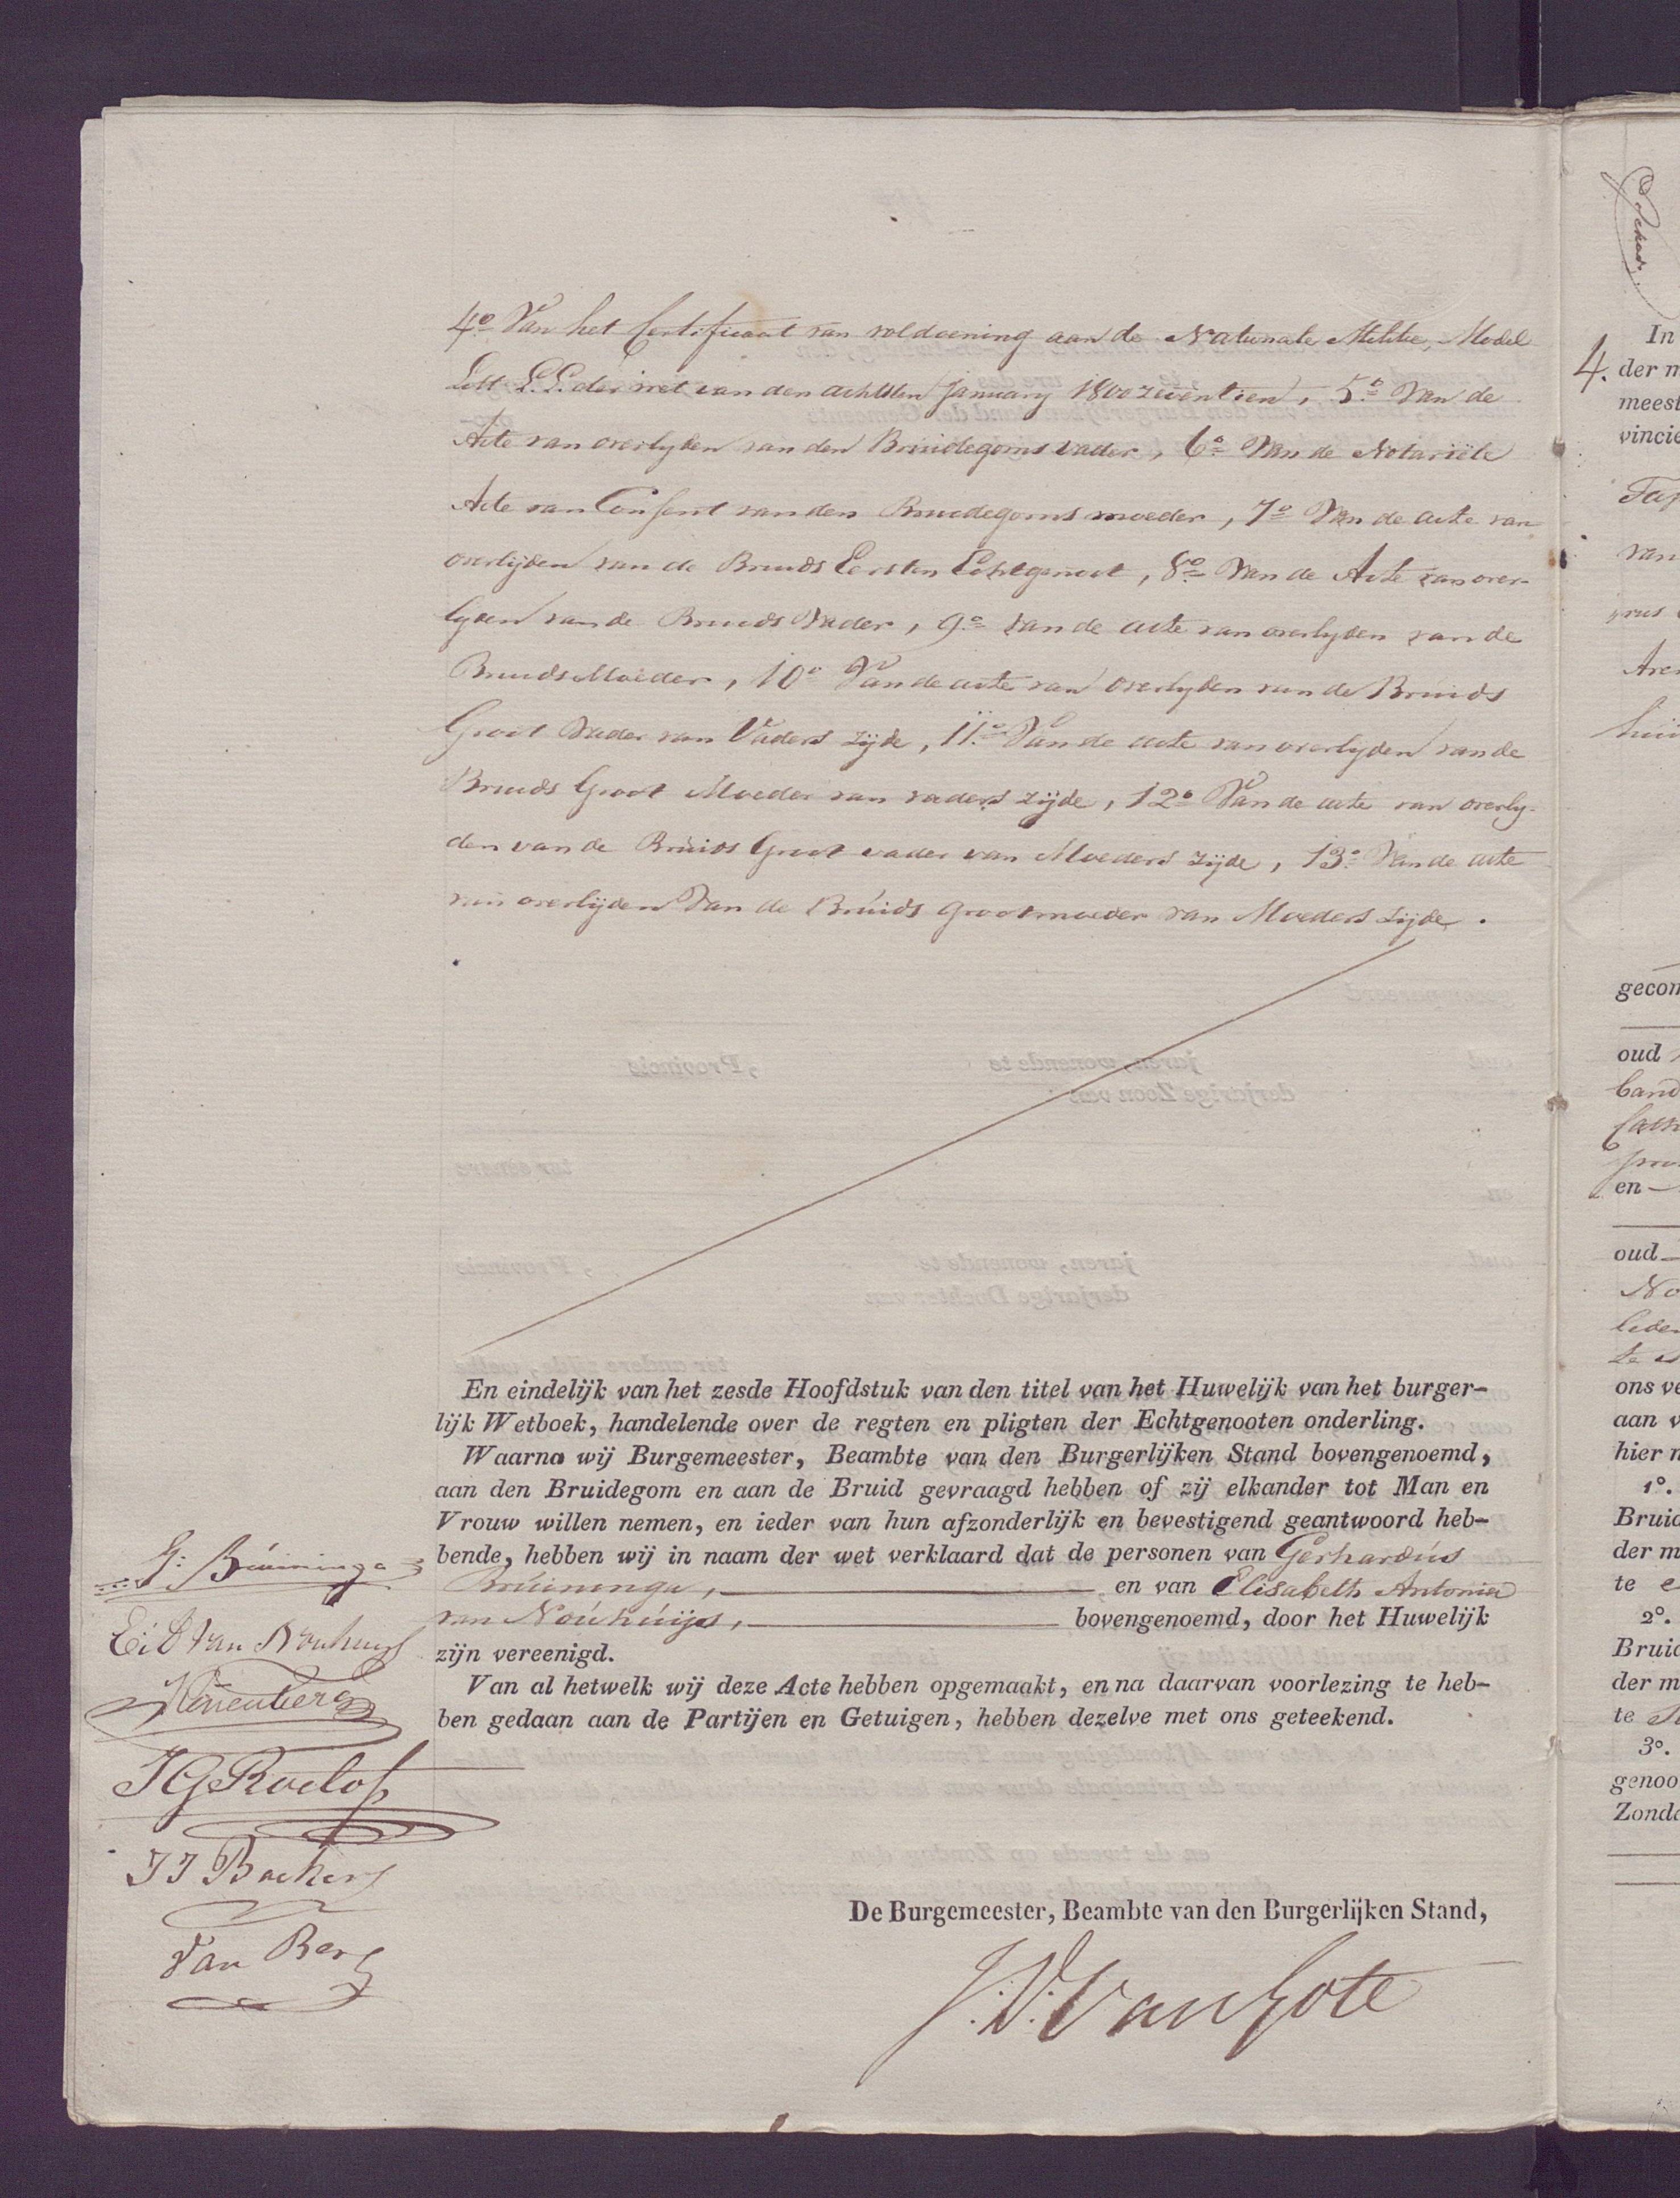 4o Van het Certificaat van voldoening aan de Nationale Militie, Model
Lett L.L. der wet van den achtsten January 1800 zeventien, 5o Van de
Acte van overlyden van den Bruidegoms vader, 6o Van de Notariële
Acte van Consent van den Bruidegoms moeder, 7o Van de acte van
overlijden van de Bruids Eersten Echtgenoot, 8o Van de Acte van over-
lyden van de Bruids Vader, 9o van de acte van overlyden van de
Bruids Moeder, 10o Van de acte van overlyden van de Bruids
Groot Vader van Vaders zijde, 11o Van de acte van overlijden van de
Bruids Groot Moeder van vaders zijde, 12o Van de acte van overly-
den van de Bruids Groot vader van Moeders zijde, 13o Van de acte
van overlijden Van de Bruids grootmoeder van Moeders zijde.
En eindelijk van het zesde Hoofdstuk van den titel van het Huwelijk van het burger-
lijk Wetboek, handelende over de regten en pligten der Echtgenooten onderling.
Waarna wij Burgemeester, Beambte van den Burgerlijken Stand bovengenoemd,
aan den Bruidegom en aan de Bruid gevraagd hebben of zij elkander tot Man en
Vrouw willen nemen, en ieder van hun afzonderlijk en bevestigend geantwoord heb-
bende, hebben wij in naam der wet verklaard dat de personen van Gerhardús
Brúininga, en van Elisabeth Antonia
van Noúhúijs, bovengenoemd, door het Huwelijk
zijn vereenigd.
Van al hetwelk wij deze Acte hebben opgemaakt, en na daarvan voorlezing te heb-
ben gedaan aan de Partijen en Getuigen, hebben dezelve met ons geteekend.
G: Brúininga
van Nouhuys
JG Roelofs
JJ Backers
Van Berg
De Burgemeester, Beambte van den Burgerlijken Stand,
J.V. Van Gote
4.
In
der m
meest
vincie
van
gecom
oud
en
oud
No
ons ve
aan v
hier n
1o.
Bruid
der m
te
2o.
Bruid
der m
te
3o.
genoo
Zonda